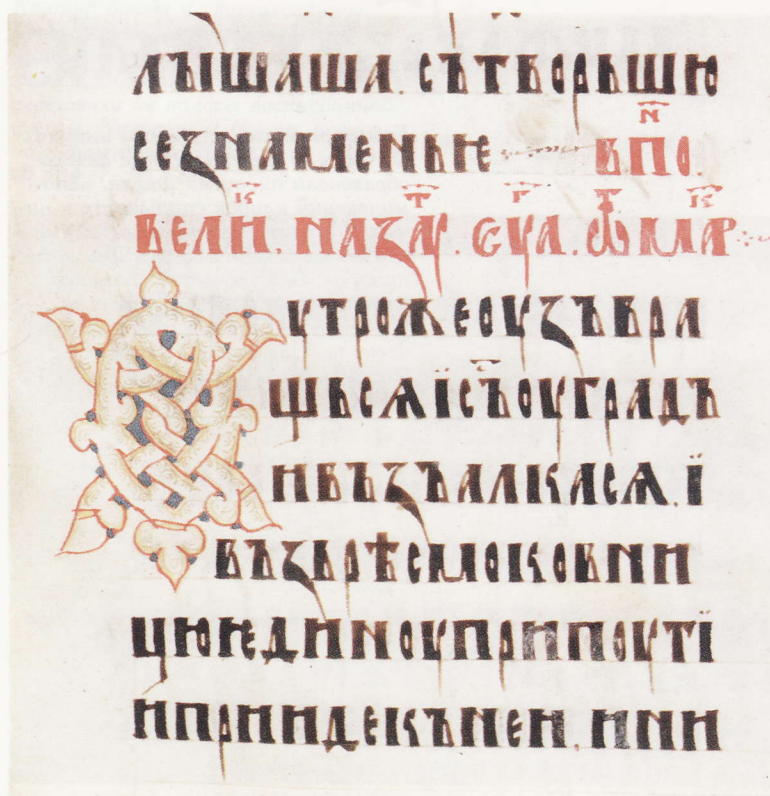 лꙑшаша. сътворьшю
сезнаменьѥ впо⁽ⷩ҇⁾.
велиⷦ҇. назаѵⷮ҇. єѵаⷢ҇. ѿмарⷦ҇
Оутрожеоузъвра
щьсѧїс҃ъоуградъ
ивъзъалкасѧ.ї
възьрѣсмоковни
цюѥдиноуприпоутї
иприидекънеи.ини